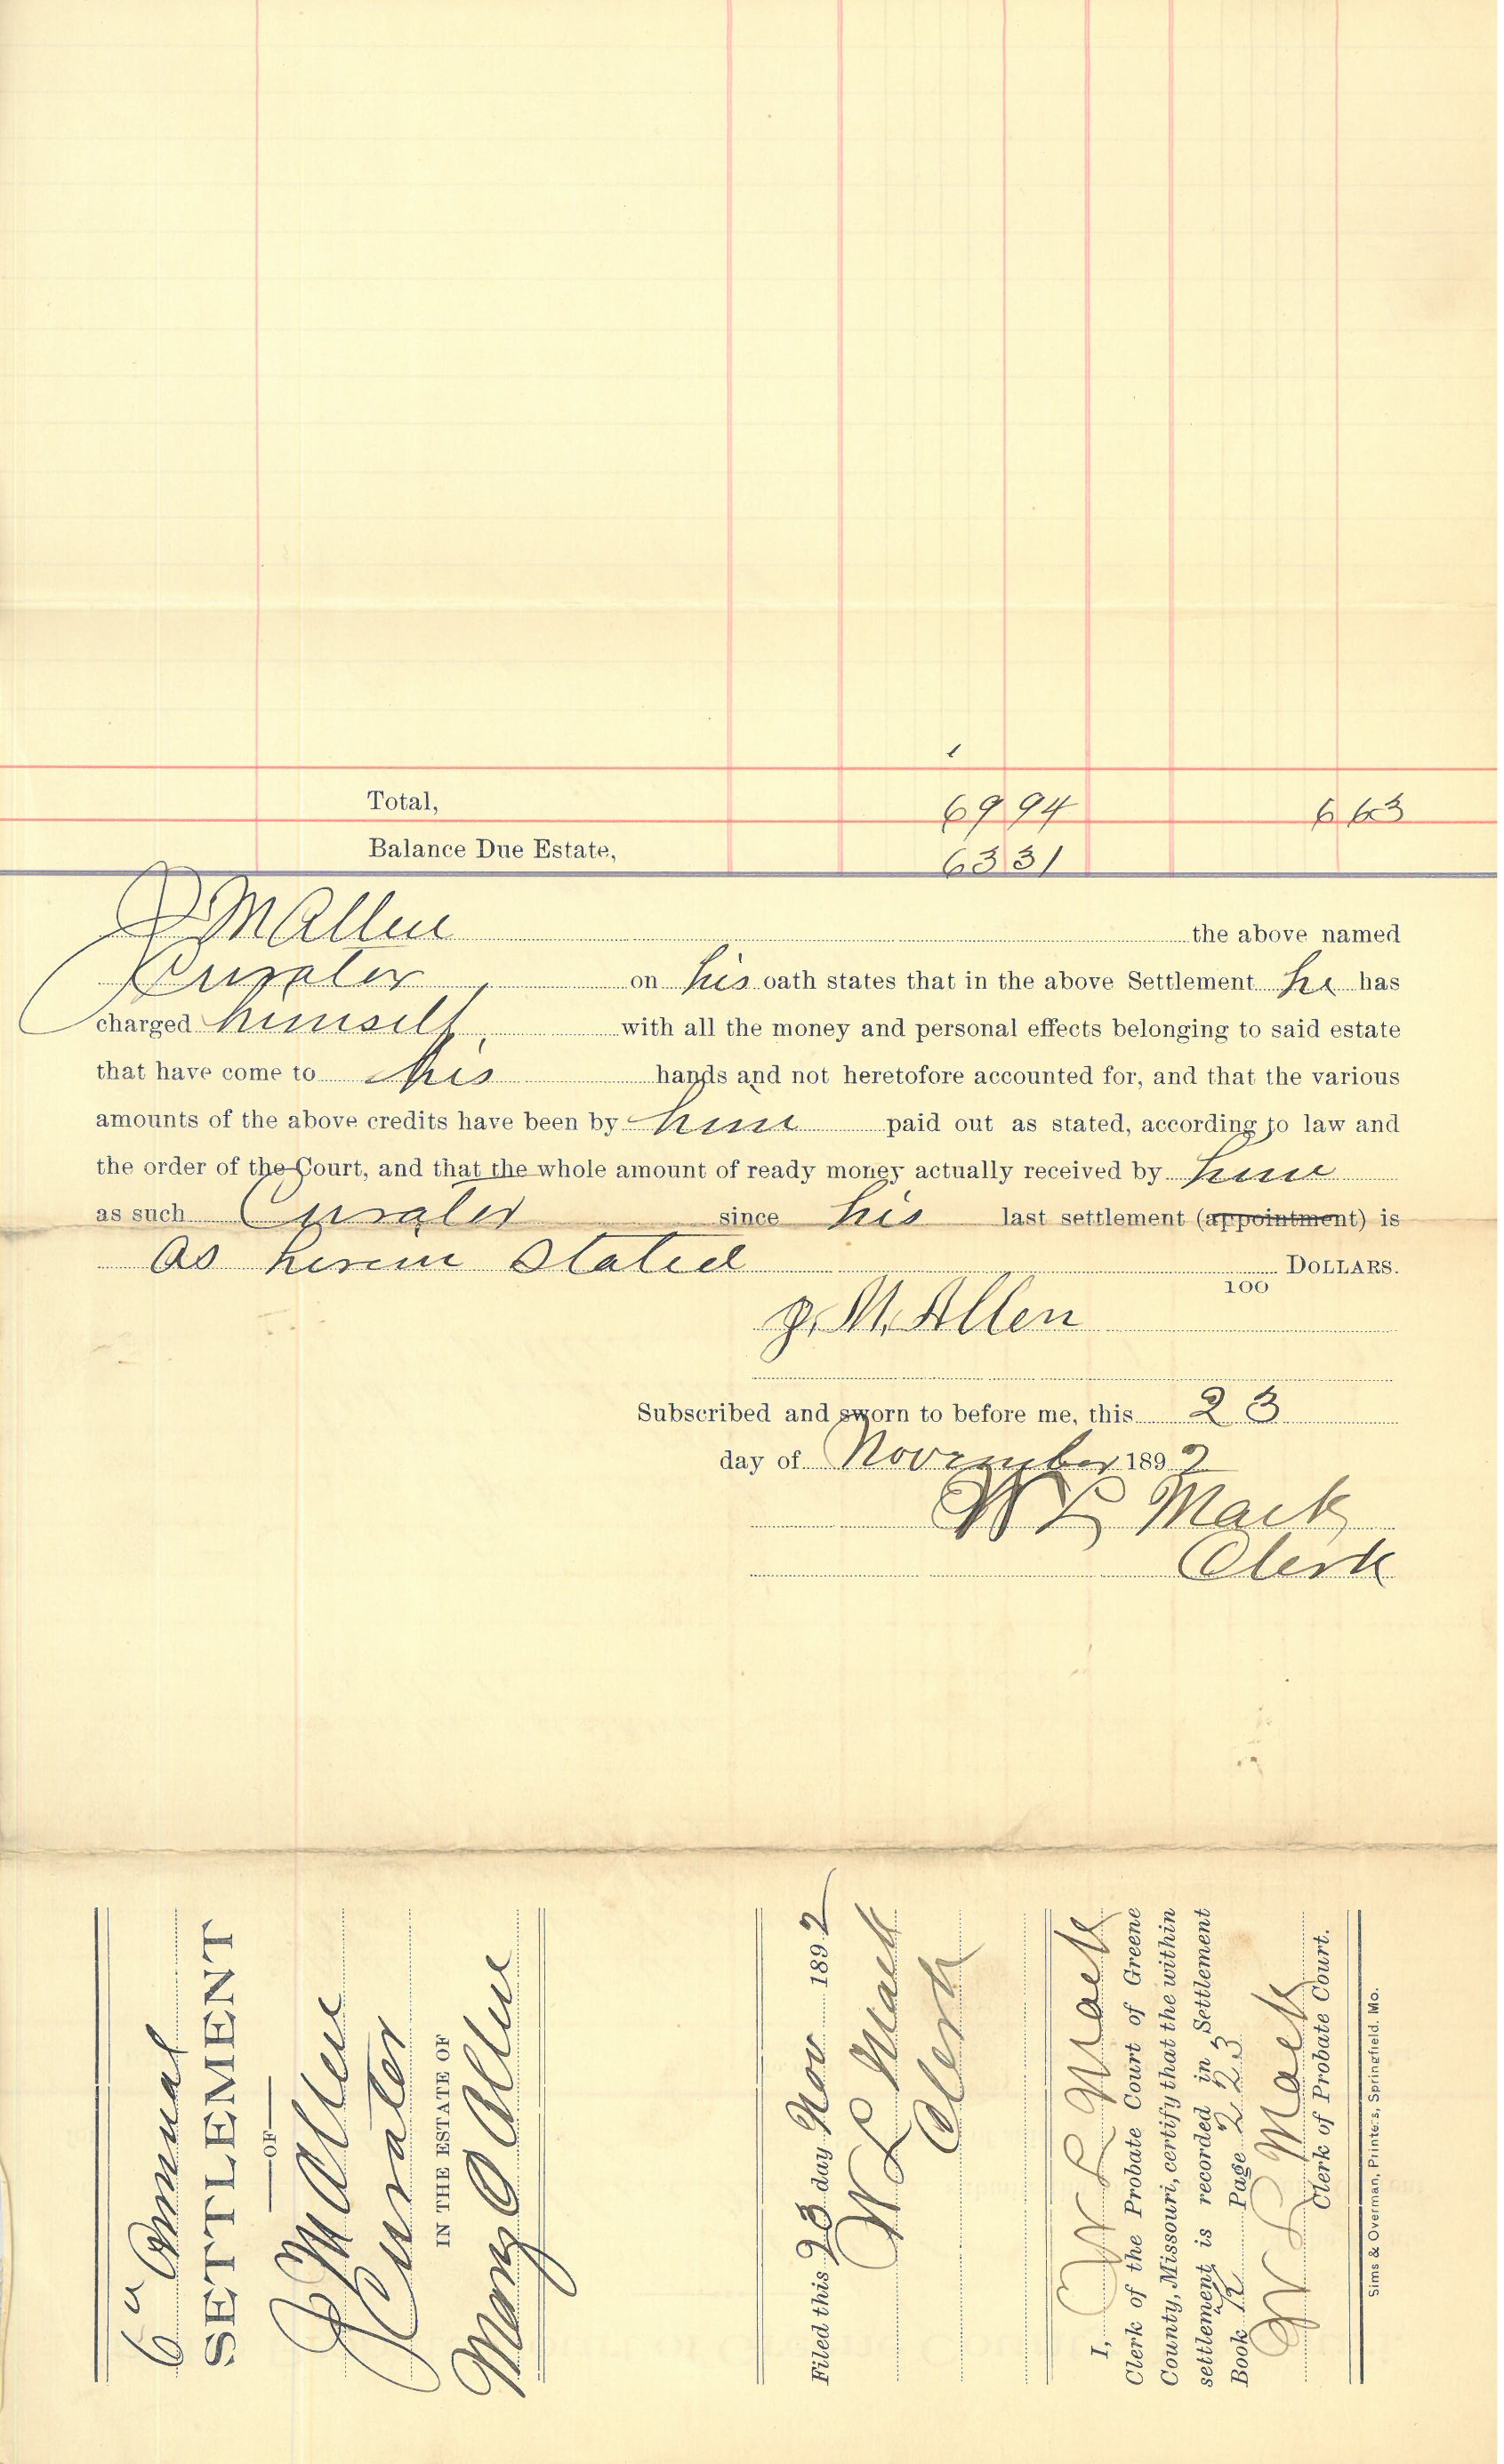 Total, 69 94 6 63
Balance Due Estate, 63 31
J M Allen the above named
Curator on his oath states that in the above Settlement he has
charged himself with all the money and personal effects belonging to said estate
that have come to his hands and not heretofore accounted for, and that the various
amounts of the above credits have been by him paid out as stated, according to law and
the order of the Court, and that the whole amount of ready money actually received by him
as such Curator since his last settlement (appointment) is
as herein stated DOLLARS.
100
J. M. Allen
Subscribed and sworn to before me, this 23
day of November 1892
W L Mack
Clerk
6" Annual
SETTLEMENT
OF
J M Allen
Curator
IN THE ESTATE OF
Mary O Allen
Filed this 23 day Nov 1892
W L Mack
Clerk
I, W L Mack
Clerk of the Probate Court of Greene
County, Missouri, certify that the within
settlement is recorded in Settlement
Book Page 223
W L Mack
Clerk of Probate Court.
Sims & Overman, Printers, Springfield, Mo.